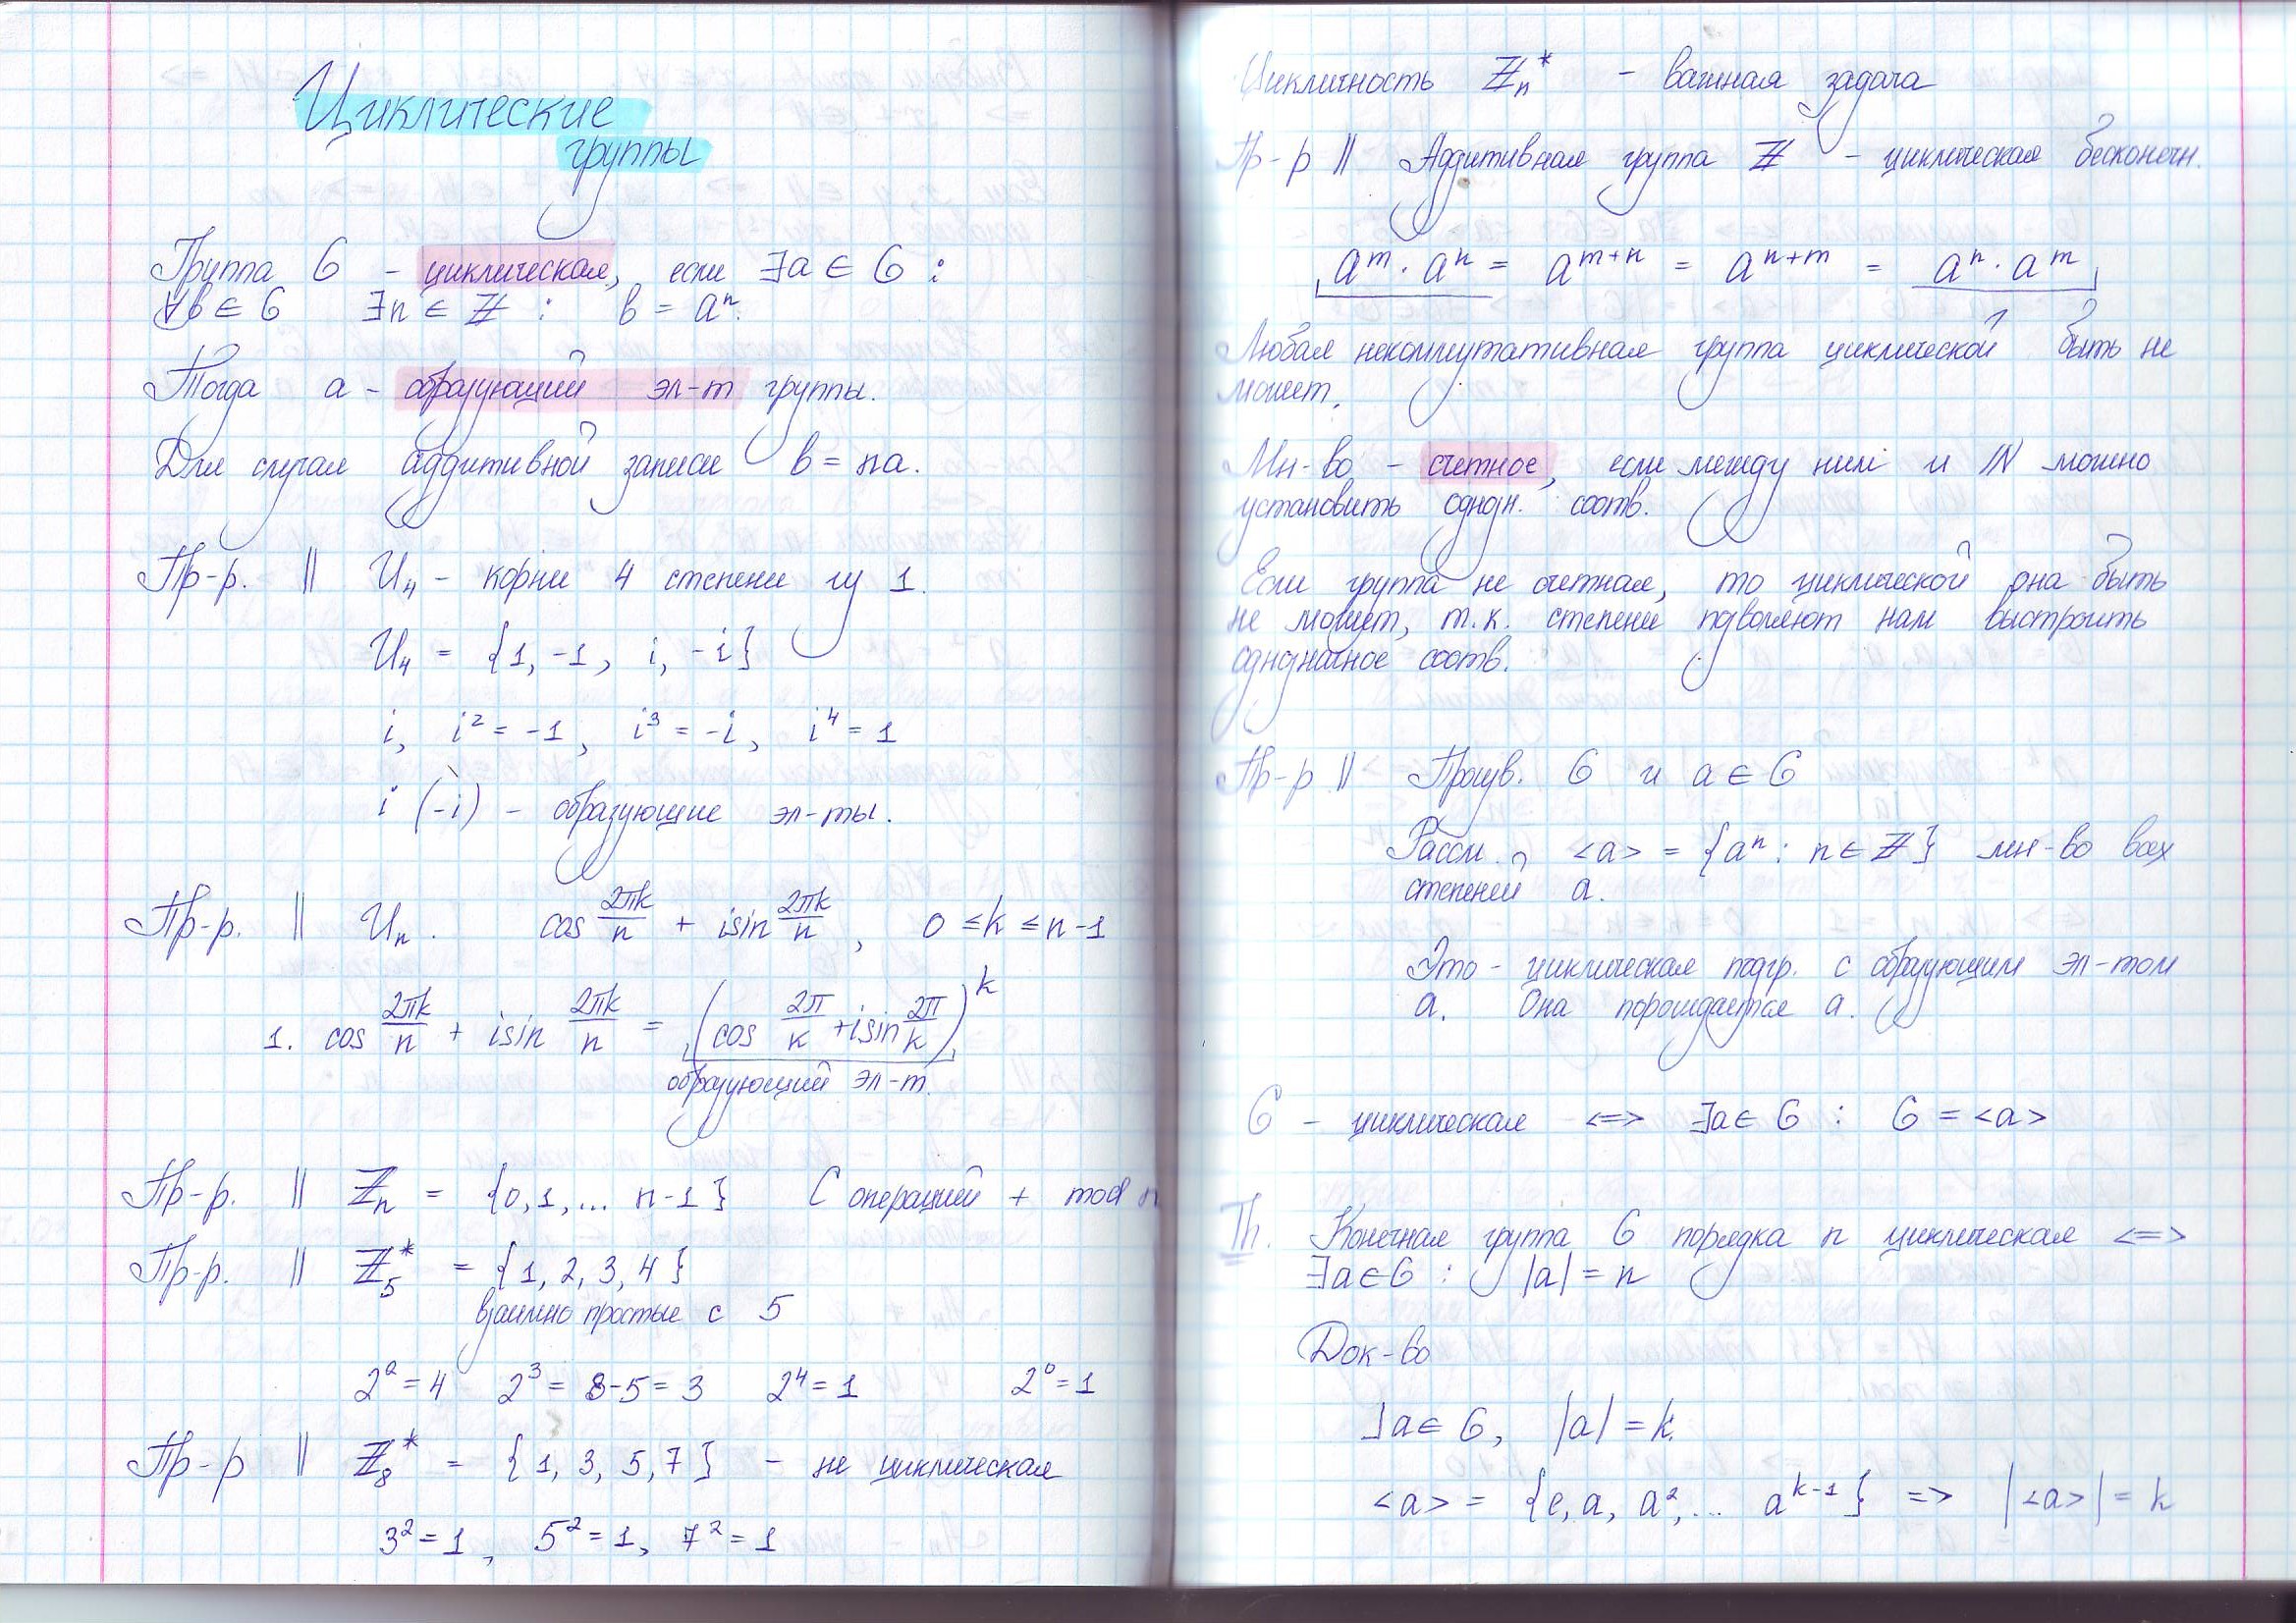 Циклические
группы
Группа G - циклическая, если ∃a ∈ G :
∀b ∈ G ∃n ∈ ℤ : b = aⁿ.
Тогда a - образующий эл-т группы.
Для случая аддитивной записи b = na.
Пр-р. || U₄ - корни 4 степени из 1.
U₄ = {1, -1, i, -i}
i, i² = -1, i³ = -i, i⁴ = 1
i (-i) - образующие эл-ты.
Пр-р. || Uₙ. cos 2πk/n + isin 2πk/n, 0 ≤ k ≤ n-1
1. cos 2πk/n + isin 2πk/n = (cos 2π/k + isin 2π/k)^k
образующий эл-т.
Пр-р. || ℤₙ = {0, 1, ... n-1} С операцией + mod n
Пр-р. || ℤ₅* = {1, 2, 3, 4}
взаимно простые с 5
2² = 4 2³ = 8-5 = 3 2⁴ = 1 2⁰ = 1
Пр-р || ℤ₈* = {1, 3, 5, 7} - не циклическая
3² = 1, 5² = 1, 7² = 1
Цикличность ℤₙ* - важная задача
Пр-р || Аддитивная группа ℤ - циклическая бесконечн.
aᵐ · aⁿ = aᵐ⁺ⁿ = aⁿ⁺ᵐ = aⁿ · aᵐ
Любая некоммутативная группа циклической быть не
может.
Мн-во - счетное, если между ним и ℕ можно
установить однозн. соотв.
Если группа не счетная, то циклической она быть
не может, т.к. степени позволяют нам выстроить
однозначное соотв.
Пр-р || Произв. G и a ∈ G
Рассм. <a> = {aⁿ : n ∈ ℤ} мн-во всех
степеней a.
Это - циклическая подгр. с образующим эл-том
a. Она порождается a.
G - циклическая <=> ∃a ∈ G : G = <a>
Th. Конечная группа G порядка n циклическая <=>
∃a ∈ G : |a| = n
Док-во
∃a ∈ G, |a| = k.
<a> = {e, a, a², ... aᵏ⁻¹} => |<a>| = k